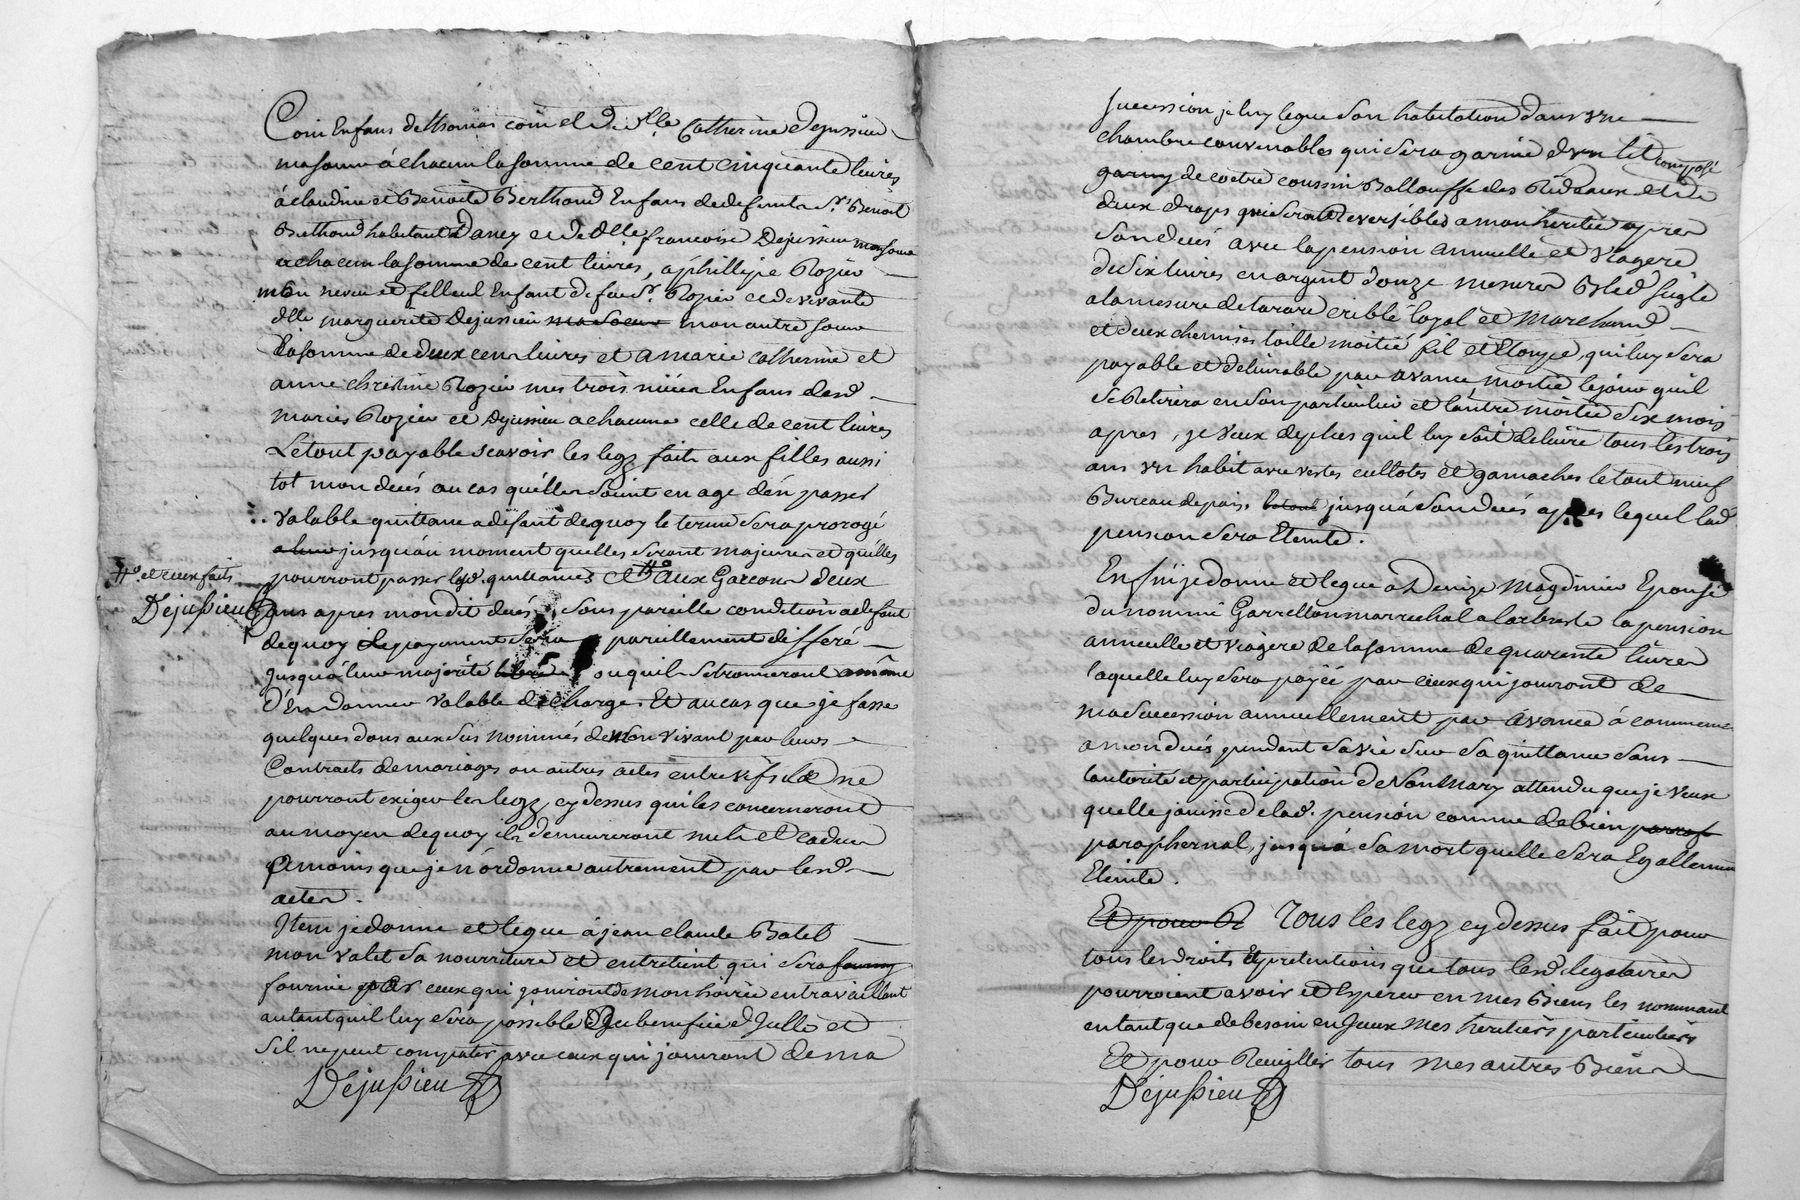 Coin Enfans de thomas coin et de dlle Catherine Dejussieu
ma soeur á chacun la somme de cent cinquante livres
á claudine et Benoite Berthoud Enfans de defunt Sr Benoit
Berthoud habitant Dancy et de dlle francoise Dejussieu ma soeur
a chacun la somme de cent livres, a phillippe Rozier
mon neveu et filleul Enfant de feu Sr. Rozier et de vivante
dlle marguerite Dejussieu ma soeur mon autre soeur
la somme de deux cent livres et a marie catherine et
anne christine Rozier mes trois niéces Enfans desd
mariés Rozier et Dejussieu a chacune celle de cent livres
Le tout payable scavoir les legz faits aux filles aussi
tot mon decés au cas quélles soient en age dén passer
valable quittance a défaut de quoy le terme sera prorogé
jusquáu moment quelles seront majeures et quélles
pourront passer lesd. quittances et aux Garcons deux
#o. et ceux faits
Dejussieu
ans apres mon dit decés sous pareille condition a defaut
de quoy le payement sera pareillement differé
jusquá leur majorité ou quils se trouveront a même
d'én donner valable décharge. Et au cas que je fasse
quelques dons aux sus nommés de mon vivant par leurs
Contracts de mariages ou autres actes entre vifs ils ne
pourront exiger les legz cy dessus qui les concerneront
au moyen de quoy ils demeureront nuls et caducs
a moins que je n'órdonne autrement par lesd
actes.
Item je donne et legue á jean claude Batel
mon valet sa nourriture et entretient qui sera fourny
fournie par ceux qui jouiront de mon hoirie en travaillant
autant quil luy sera possible au benefice d'Icelle et
sil ne peut compatir avec ceux qui jouiront de ma
Dejussieu
succession je luy legue son habitation dans une
chambre convenables qui sera garnie d'un lit composé
garny de coetre coussin Ballouffe des Rideaux et de
deux draps qui seront reversibles a mon heritier apres
son decés avec la pension annuelle et viagere
de six livres en argent douze mesures Bled seigle
a la mesure de tarare criblé loyal et marchand
et deux chemises toille moitié fil et Etouppe, qui luy sera
payable et delivrable par avance moitié le jour quil
se Retirera en son particulier et láutre moitié six mois
apres, je veux de plus quil luy soit delivré tous les trois
ans un habit avec vestes cullotes et gamaches le tout neuf
Bureau de pais, le tout jusquá son decés apres lequel lad
pension sera Eteinte.
Enfin je donne et legue a Denize Magdinier Epouse
du nommé Garrellon marrechal a larbresle la pension
annuelle et viagere de la somme de quarente livres
laquelle luy sera payéé par ceux qui jouiront de
ma succession annuellement par avance á commencer
a mon decés pendant sa vie sur sa quittance sans
lautorité et participation de son mary attendu que je veux
quelle jouisse de lad. pension comme de bien parraf
paraphernal, jusquá sa mort quelle sera Egallement
Eteinte.
Et pour R Tous les legz cy dessus fait pour
tous les droits et pretentions que tous lesd legataires
pourroient avoir et Esperer en mes Biens les nommant
en tant que de besoin en Iceux mes heritiers particuliers
Et pour Recuillir tous mes autres Biens
Dejussieu